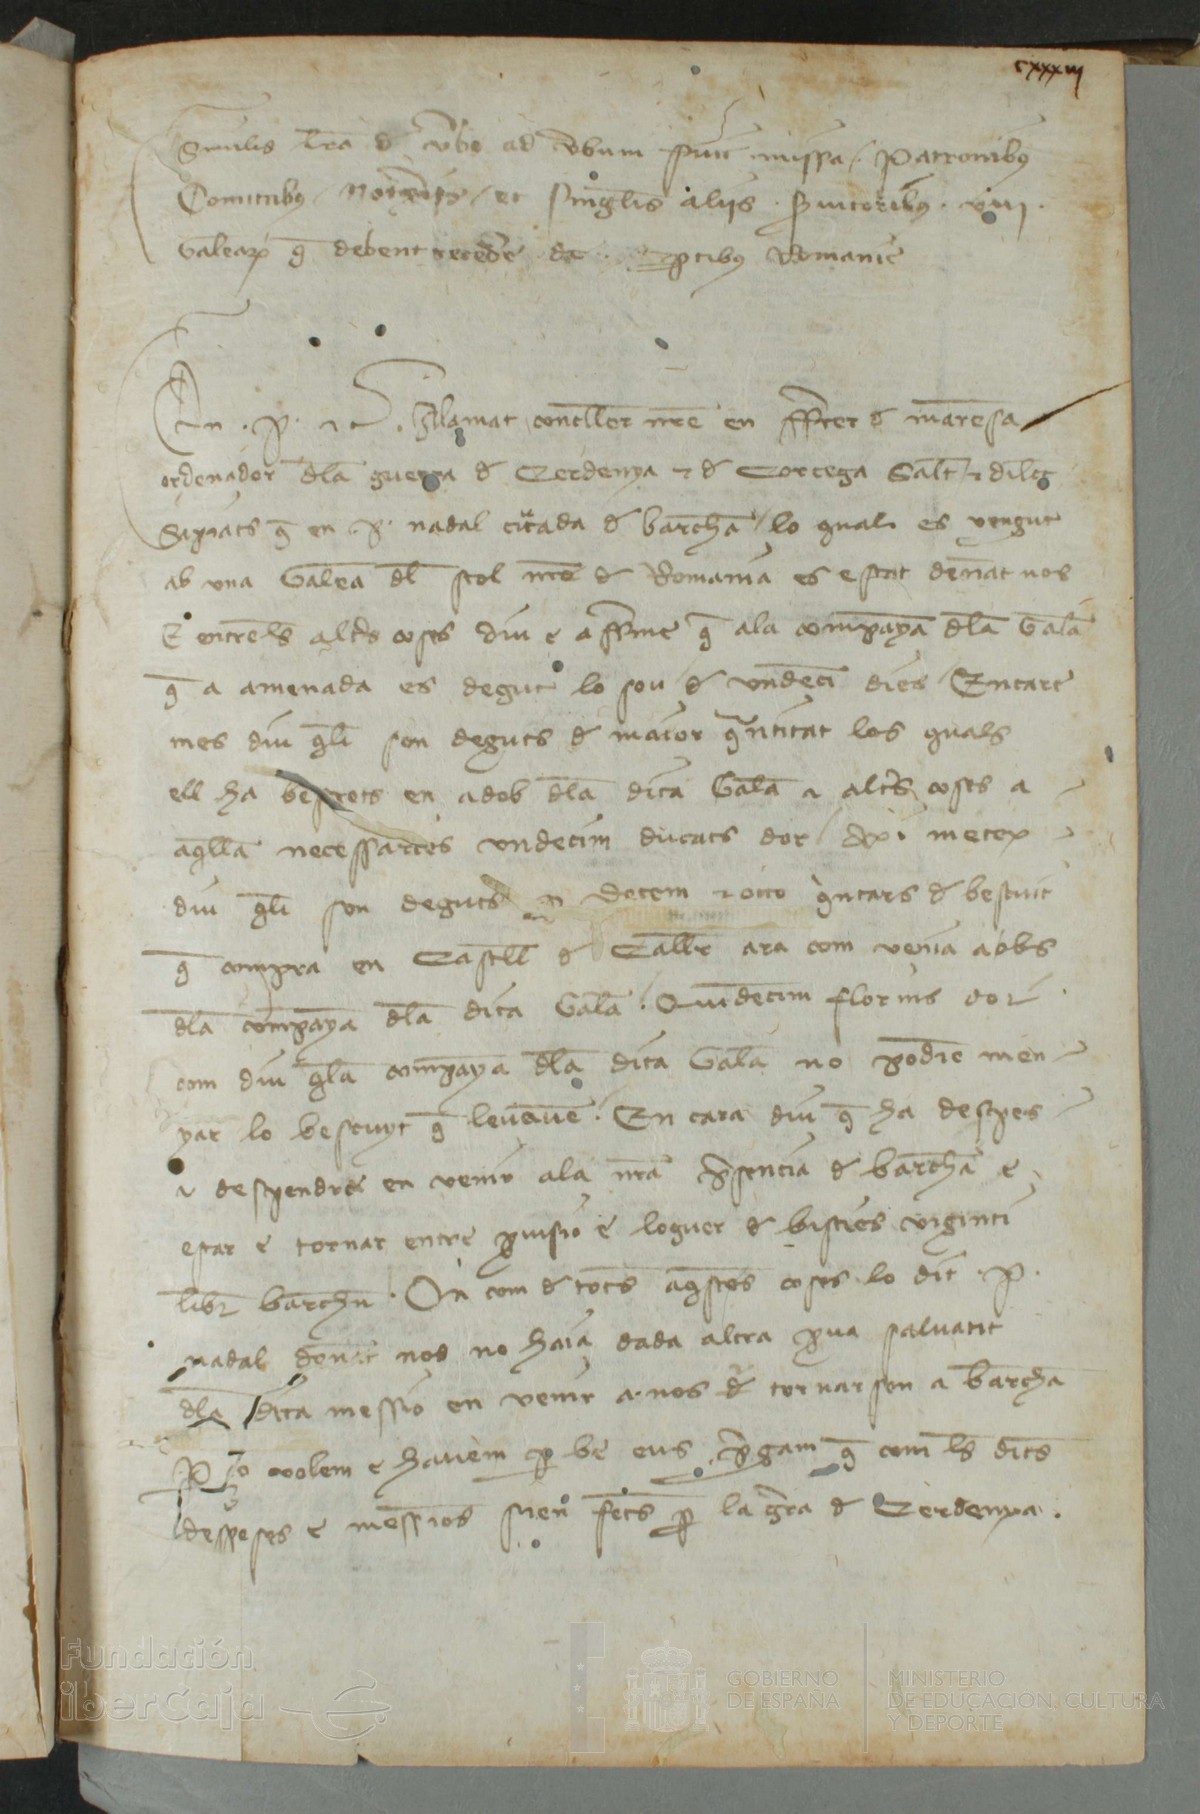 cxxxiij
Similis lra de verbo ad verbum fuit missa Patronibus
Comitribus et singlis aliis svitoribus viij
Galearum q debent recedere de ptibus Romanie
En P. etc. al amat conceller nre en fferrer d manresa
ordenador dla guerra d Cerdenya e d Corcega Salt e dilec
Sapiats q en P. nadal ciutada d barchna lo qual es vengut
ab una Galea dl stol nre d Romania es estat denant nos
E entrels altres coses diu e afferme q ala companya dla Galea
q a amenada es degut lo sou d undecim dies Encare
mes diu qli son deguts d maior quantitat los quals
ell ha bestrets en adob dla dita Galea e altres coses a
aqlla necessaries undecim ducats dor axi metex
diu qli son deguts decem e octo quintars d bescuit
q compra en Castell d Caller ara com venia a obs
dla companya dla dita Galea. Quindecim florins dor
com diu qla companya dla dita Galea no podie men
yar lo bescuyt q levaven. En cara diu q ha despes
e despendre en venir ala nra psencia d barchna e
estar e tornar entre pvisio e loguer d bisties viginti
libr barchn. On com d totes aqstes coses lo dit P.
nadal denant nos no haia dada altra pva salvant
dla dita messio en venir a nos e d tornarsen a barchna
P ço volem e havem p be eus pgam q com ls dites
despeses e messions sien fetes p la gra d Cerdenya.
Fundación
iberCaja
GOBIERNO
DE ESPAÑA
MINISTERIO
DE EDUCACIÓN, CULTURA
Y DEPORTE